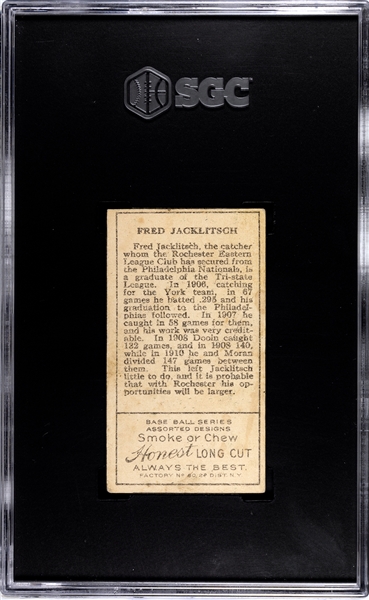 SGC
FRED JACKLITSCH
Fred Jacklitsch, the catcher
whom the Rochester Eastern
League Club has secured from
the Philadelphia Nationals, is
a graduate of the Tri-state
League. In 1906, catching
for the York team, in 67
games he batted .298 and his
graduation to the Philadel-
phias followed. In 1907 he
caught in 58 games for them,
and his work was very credit-
able. In 1908 Dooin caught
132 games, and in 1908 140,
while in 1910 he and Moran
divided 147 games between
them. This left Jacklitsch
little to do, and it is probable
that with Rochester his op-
portunities will be larger.
BASE BALL SERIES
ASSORTED DESIGNS
Smoke or Chew
Honest LONG CUT
ALWAYS THE BEST.
FACTORY Nº 30, 2d DIST. N.Y.